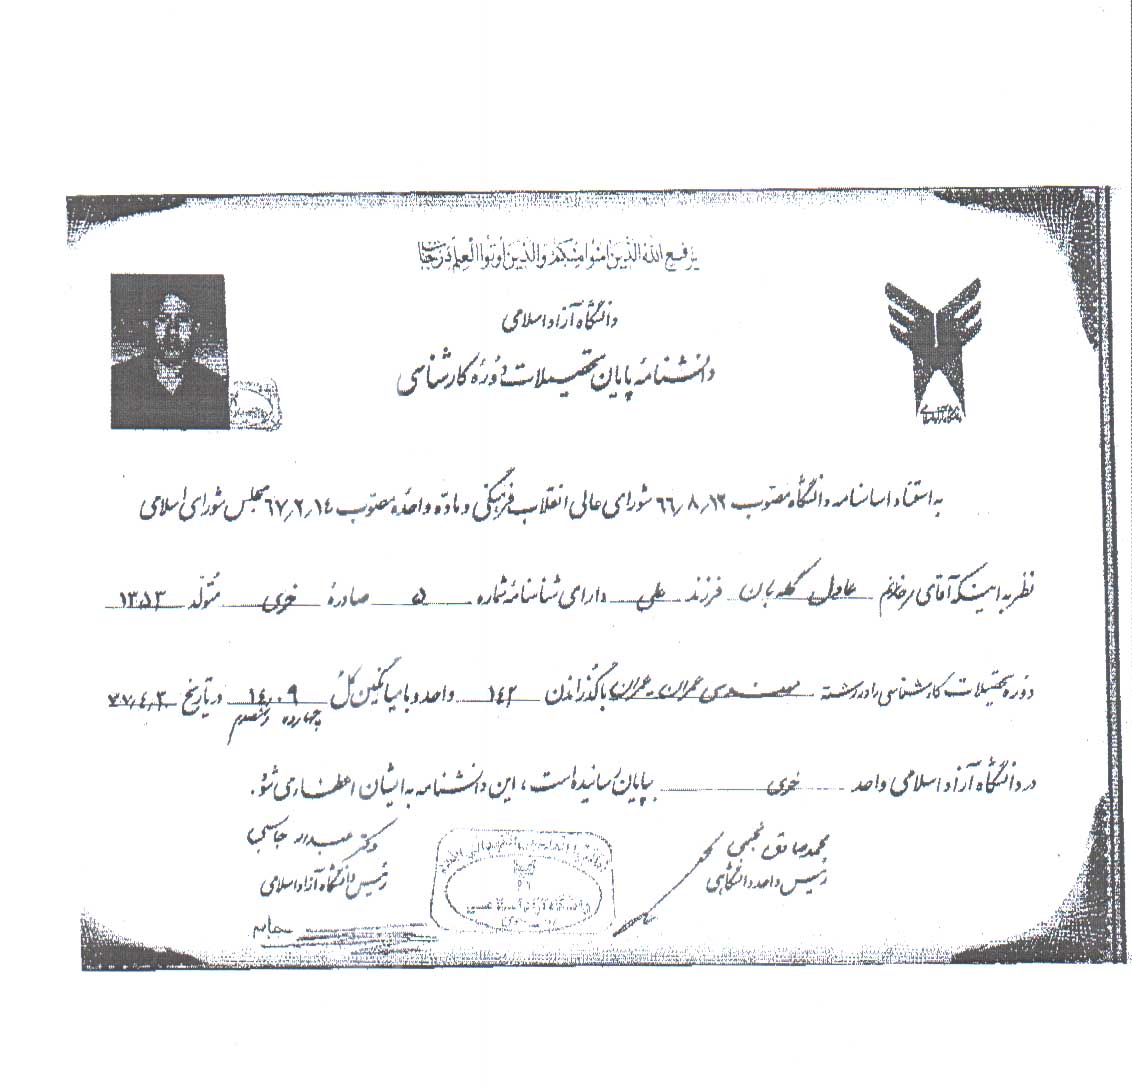 یرفع الله الذین امنوا منکم والذین اوتوا العلم درجات
دانشگاه آزاد اسلامی
دانشنامه پایان تحصیلات دورهٔ کارشناسی
به استناد اساسنامه دانشگاه مصوب ۶۶٫۸٫۱۲ شورای عالی انقلاب فرهنگی و ماده واحدهٔ مصوب ۶۷٫۲٫۱۴ مجلس شورای اسلامی
نظر به اینکه آقای/خانم عادل گله بان فرزند علی دارای شناسنامه شماره ۵ صادرهٔ خوی متولد ۱۳۵۳
دوره تحصیلات کارشناسی را در رشته مهندسی عمران - عمران با گذراندن ۱۴۲ واحد و با میانگین کل ۱۴٫۰۹ در تاریخ ۷۷٫۴٫۳
چهارده و نه صدم
در دانشگاه آزاد اسلامی واحد خوی بپایان رسانیده است، این دانشنامه به ایشان اعطاء می شود.
محمدصادق نجمی
رئیس واحد دانشگاهی
دکتر عبداله جاسبی
رئیس دانشگاه آزاد اسلامی